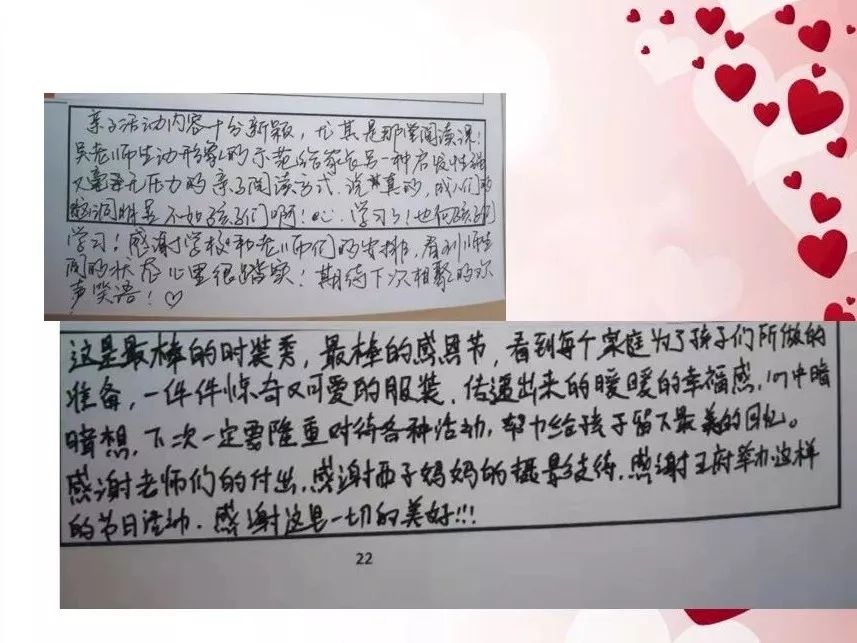 亲子活动内容十分新颖，尤其是那堂阅读课！
吴老师生动形象的示范给家长另一种启发性强
又毫无压力的亲子阅读方式，说真的，我们的
明显不如孩子们啊！学习了！也向孩子们
学习！感谢学校和老师们的安排，看到师生
间的状态心里很踏实！期待下次相聚的欢
声笑语！♡
这是最棒的时装秀，最棒的感恩节，看到每个家庭为了孩子们所做的
准备，一件件惊奇又可爱的服装，传递出来的暖暖的幸福感，心中暗
暗想，下次一定要隆重对待各种活动，努力给孩子留下最美的回忆。
感谢老师们的付出，感谢西子妈妈的摄影支持，感谢王府举办这样
的节日活动，感谢这一切的美好!!!
22